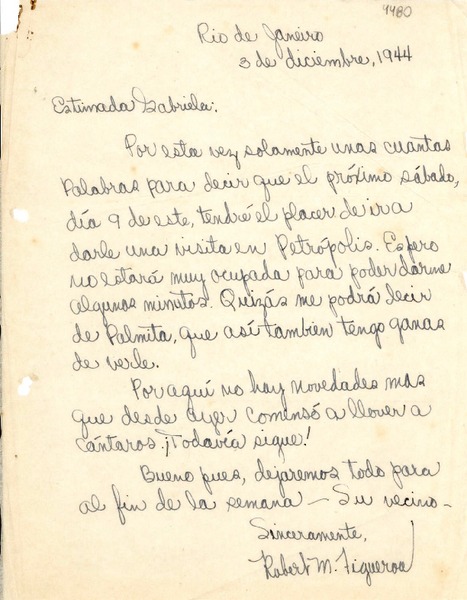 4480
Rio de Janeiro
3 de diciembre, 1944
Estimada Gabriela:
Por esta vez solamente unas cuantas
palabras para decir que el próximo sábado,
día 9 de este, tendré el placer de ir a
darle una visita en Petrópolis. Espero
no estará muy ocupada para poder darme
algunos minutos. Quizás me podrá decir
de Palmita, que así tambien tengo ganas
de verle.
Por aquí no hay novedades mas
que desde ayer comensó a llover a
cántaros. ¡Todavía sigue!
Bueno pues, dejaremos todo para
al fin de la semana — Su vecino —
Sinceramente,
Robert M. Figueroa